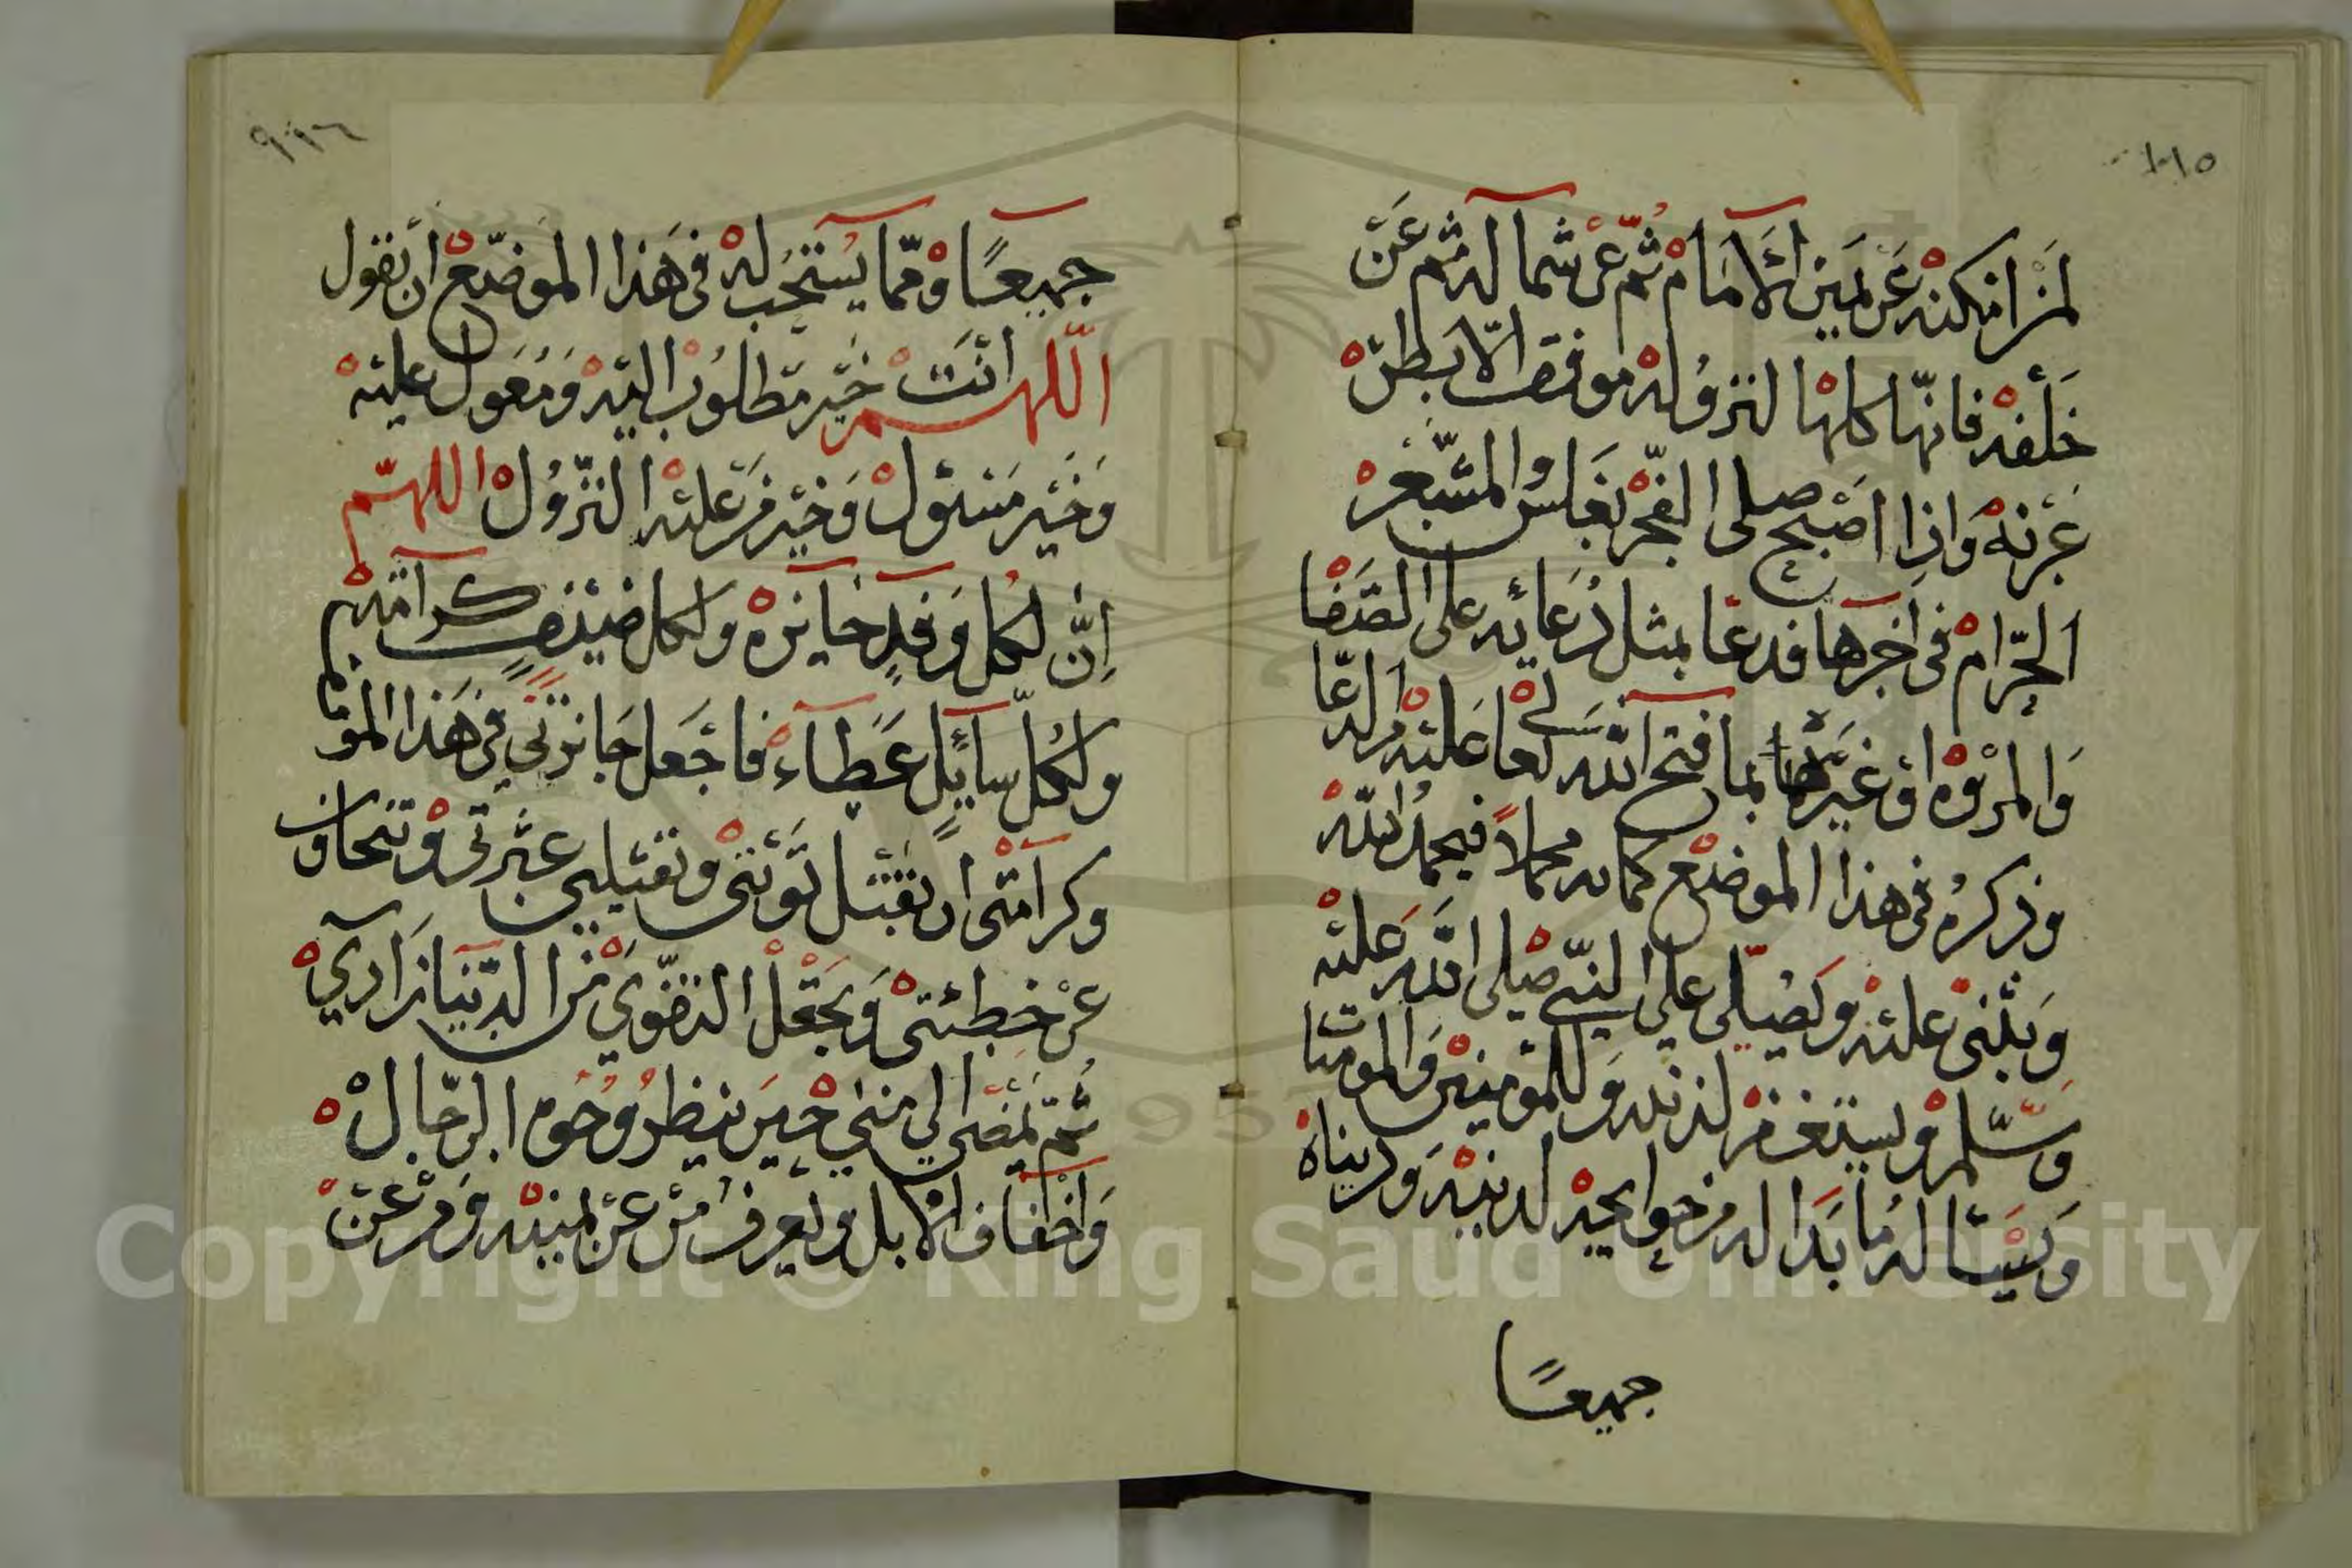 ١٠١٥
لمن امكنه عن يمين الامام ثم عن شماله ثم عن
خلفه فانها كلها لنزوله موقف الا بطن
عرنه واذا اصبح صلى الفجر بغلس والمشعر
الحرام في اخرها فدعا بمثل دعائه على الصفا
والمروه او غيرها بما فتح الله تعالى عليه من الدعا
وذكره في هذا الموضع كمانه محملا فيحمد الله
ويثني عليه ويصلي على النبي صلى الله عليه
وسلم ويستغفر لذنبه وللمومنين والمومنات
ويسال له ما بدا له من حوايجه لدنيه ودنياه
جميعا
جميعا ومما يستحب له في هذا الموضع ان يقول
اللهم انت خير مطلوب اليه ومعول عليه
وخير مسئول وخير من عليه النزول اللهم
ان لكل وفد جايزه ولكل ضيف كرامه
ولكل سايل عطاء فاجعل جايزتي في هذا المو
وكرامتي ان تقبل توبتي وتقيلني عثرتي وتتجاوز
عن خطيئتي وتجعل التقوى من الدنيا زادي
ثم يمضي الى منى حين ينظر وجوه الرجال
واخفاف الابل ويعرف من عن يمينه ومن عن
Copyright © King Saud University
1957